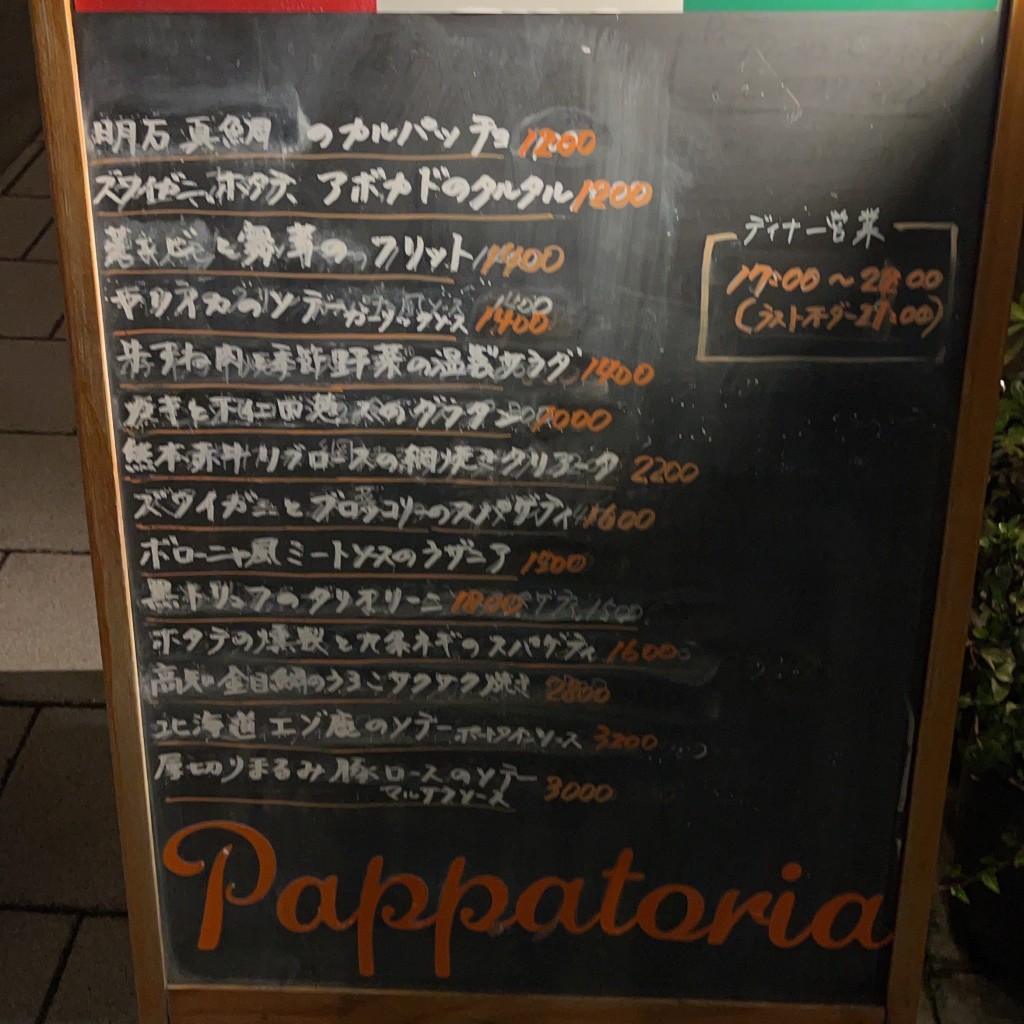 明石 真鯛 のカルパッチョ 1200
ズワイガニ、ホタテ、アボカドのタルタル 1200
と舞茸の フリット 1400
ヤリイカのソテー ガーリックソース 1400
牛すね肉と季節野菜の温製サラダ 1400
のグラタン
熊本赤牛リブロースの網焼き タリアータ 2200
ズワイガニとブロッコリーのスパゲティ 1600
ボローニャ風ミートソースのラザニア 1500
黒トリュフのタリオリーニ 1800
ホタテの燻製と九条ネギのスパゲティ 1600
高知 金目鯛のうろこサクサク焼き 2800
北海道 エゾ鹿のソテー ポートワインソース 3200
厚切りまるみ豚ロースのソテー
マルサラソース 3000
ディナー営業
17:00 〜 22:00
(ラストオーダー21:00)
Pappatoria